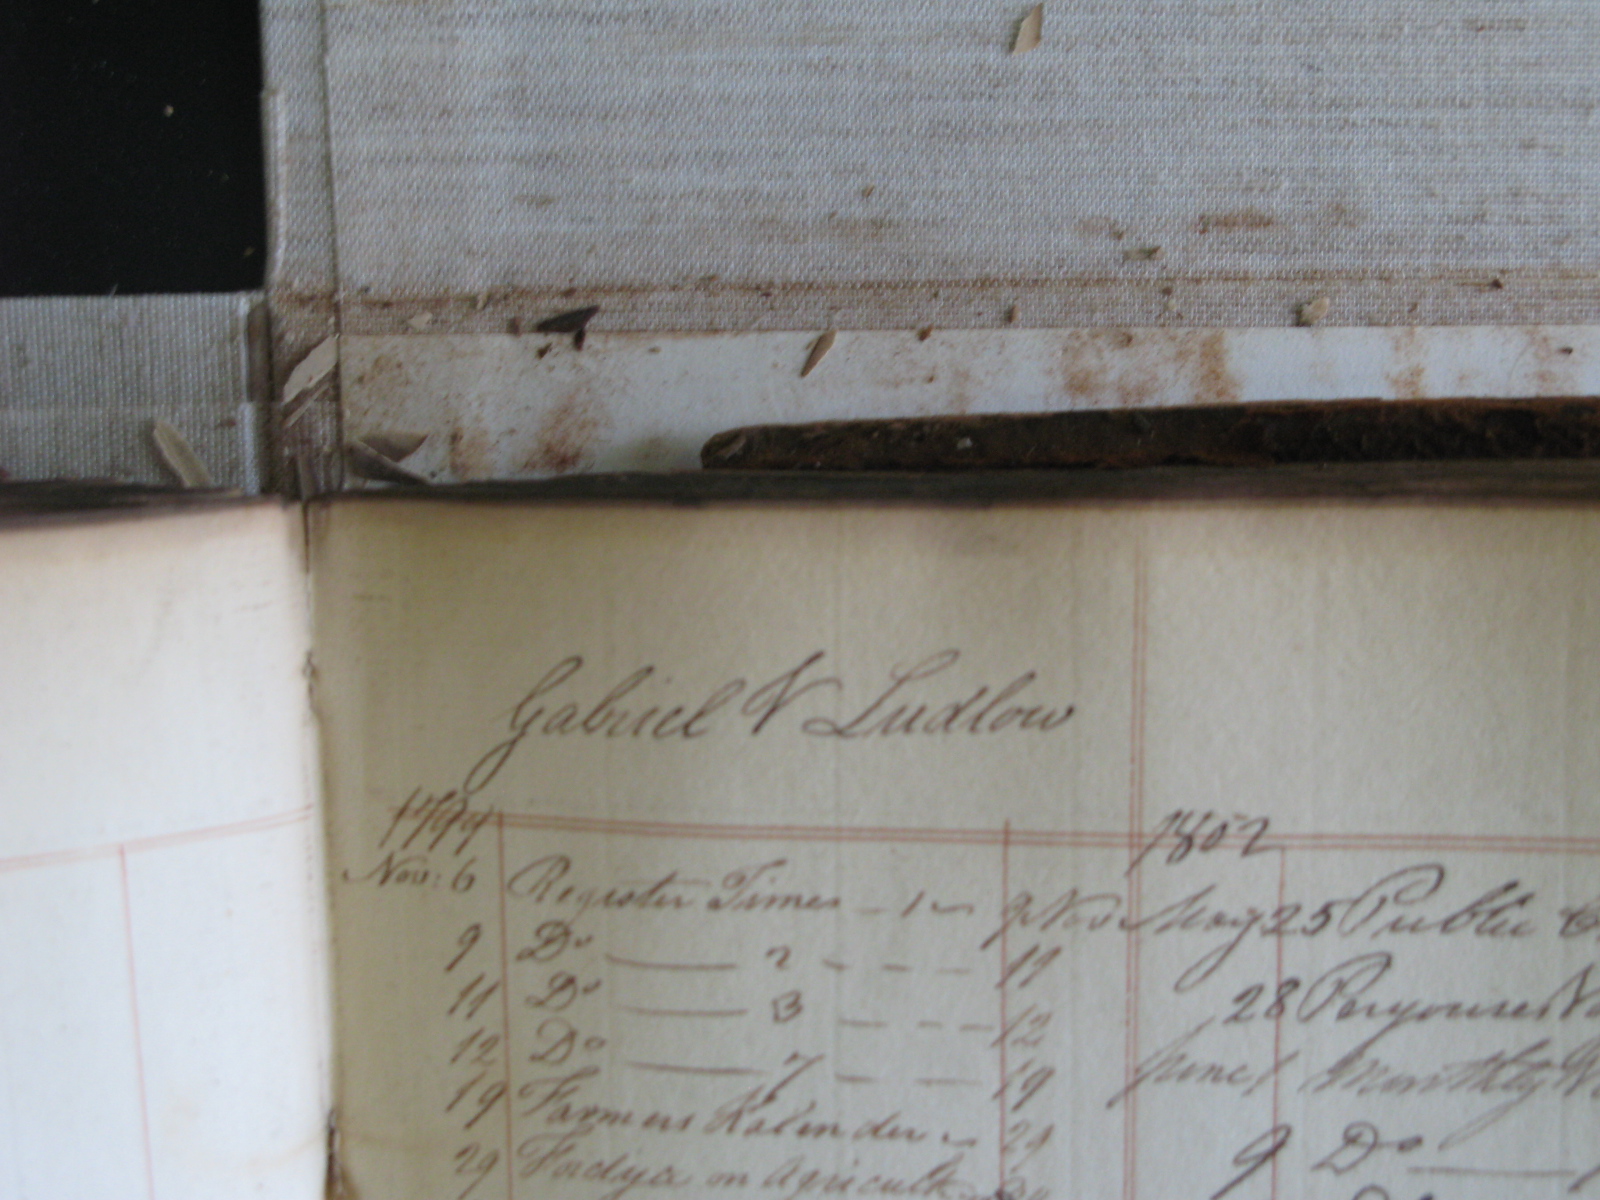 Gabriel V Ludlow
1794
Nov: 6 Register Times - 1 - 9 Nov
9 Do — 2 - - - 11
11 Do — 3 - - - 12
12 Do — 7 - - - 19
19 Farmers Kalender - 29
29 Fordyce on Agricult
1802
May 25 Public
28
June 1 Monthly
9 Do —